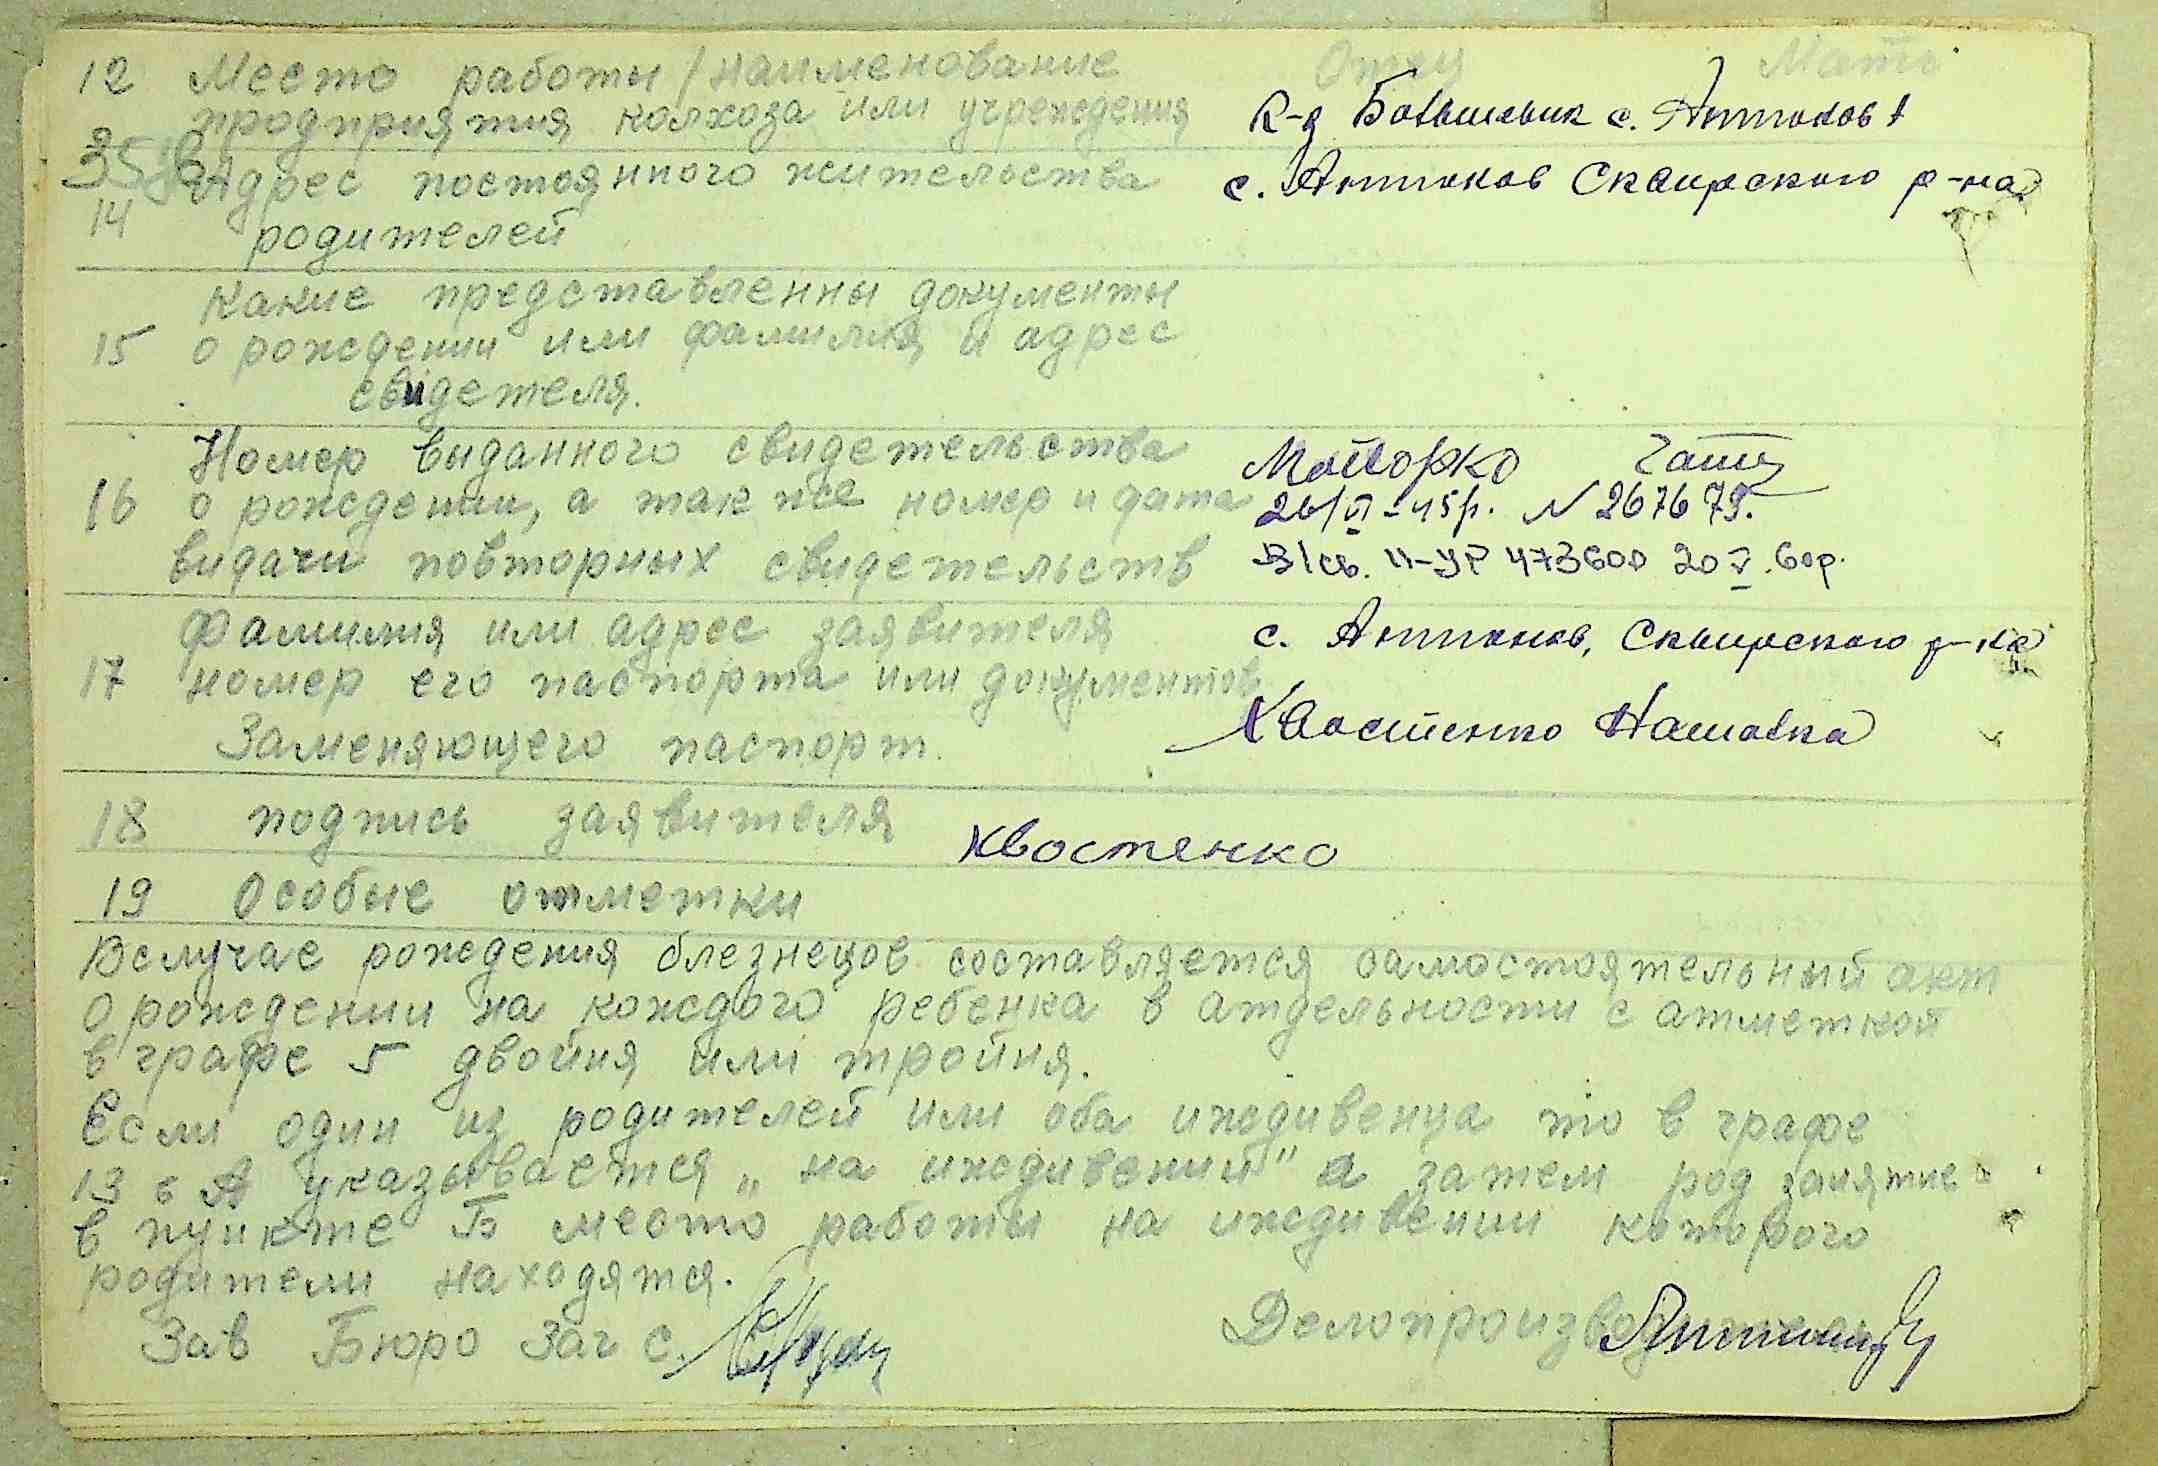 12 Место работы / наименование Отец Мать
продприятия колхоза или учреждения К-з Большевик с. Антонов
35 Адрес постоянного жительства с. Антонов Сквирского р-на
14 родителей
Какие представленны документы
15 о рождении или фамилия и адрес
свидетеля.
Номер выданного свидетельства
16 о рождении, а так же номер и дата 26/VI-45р. N 267679.
видачи повторных свидетельств В/св. II-УР 473600 20 V.60р.
Фамилия или адрес заявителя с. Антонов, Сквирского р-на
17 номер его паспорта или документов
Заменяющего паспорт. Хвостенко Наталка
18 подпись заявителя Хвостенко
19 Особые отметки
Вслучае рождения блезнецов составляется самостоятельный акт
о рождении на кождого ребенка в атдельности с атметкой
в графе 5 двойня или тройня.
Если один из родителей или оба иждивенца то в графе
13 в А указывается „на иждивении" а затем род занятие
в пункте Б место работы на иждивении которого
родители находятся.
Зав Бюро Заг с. Делопроизвод